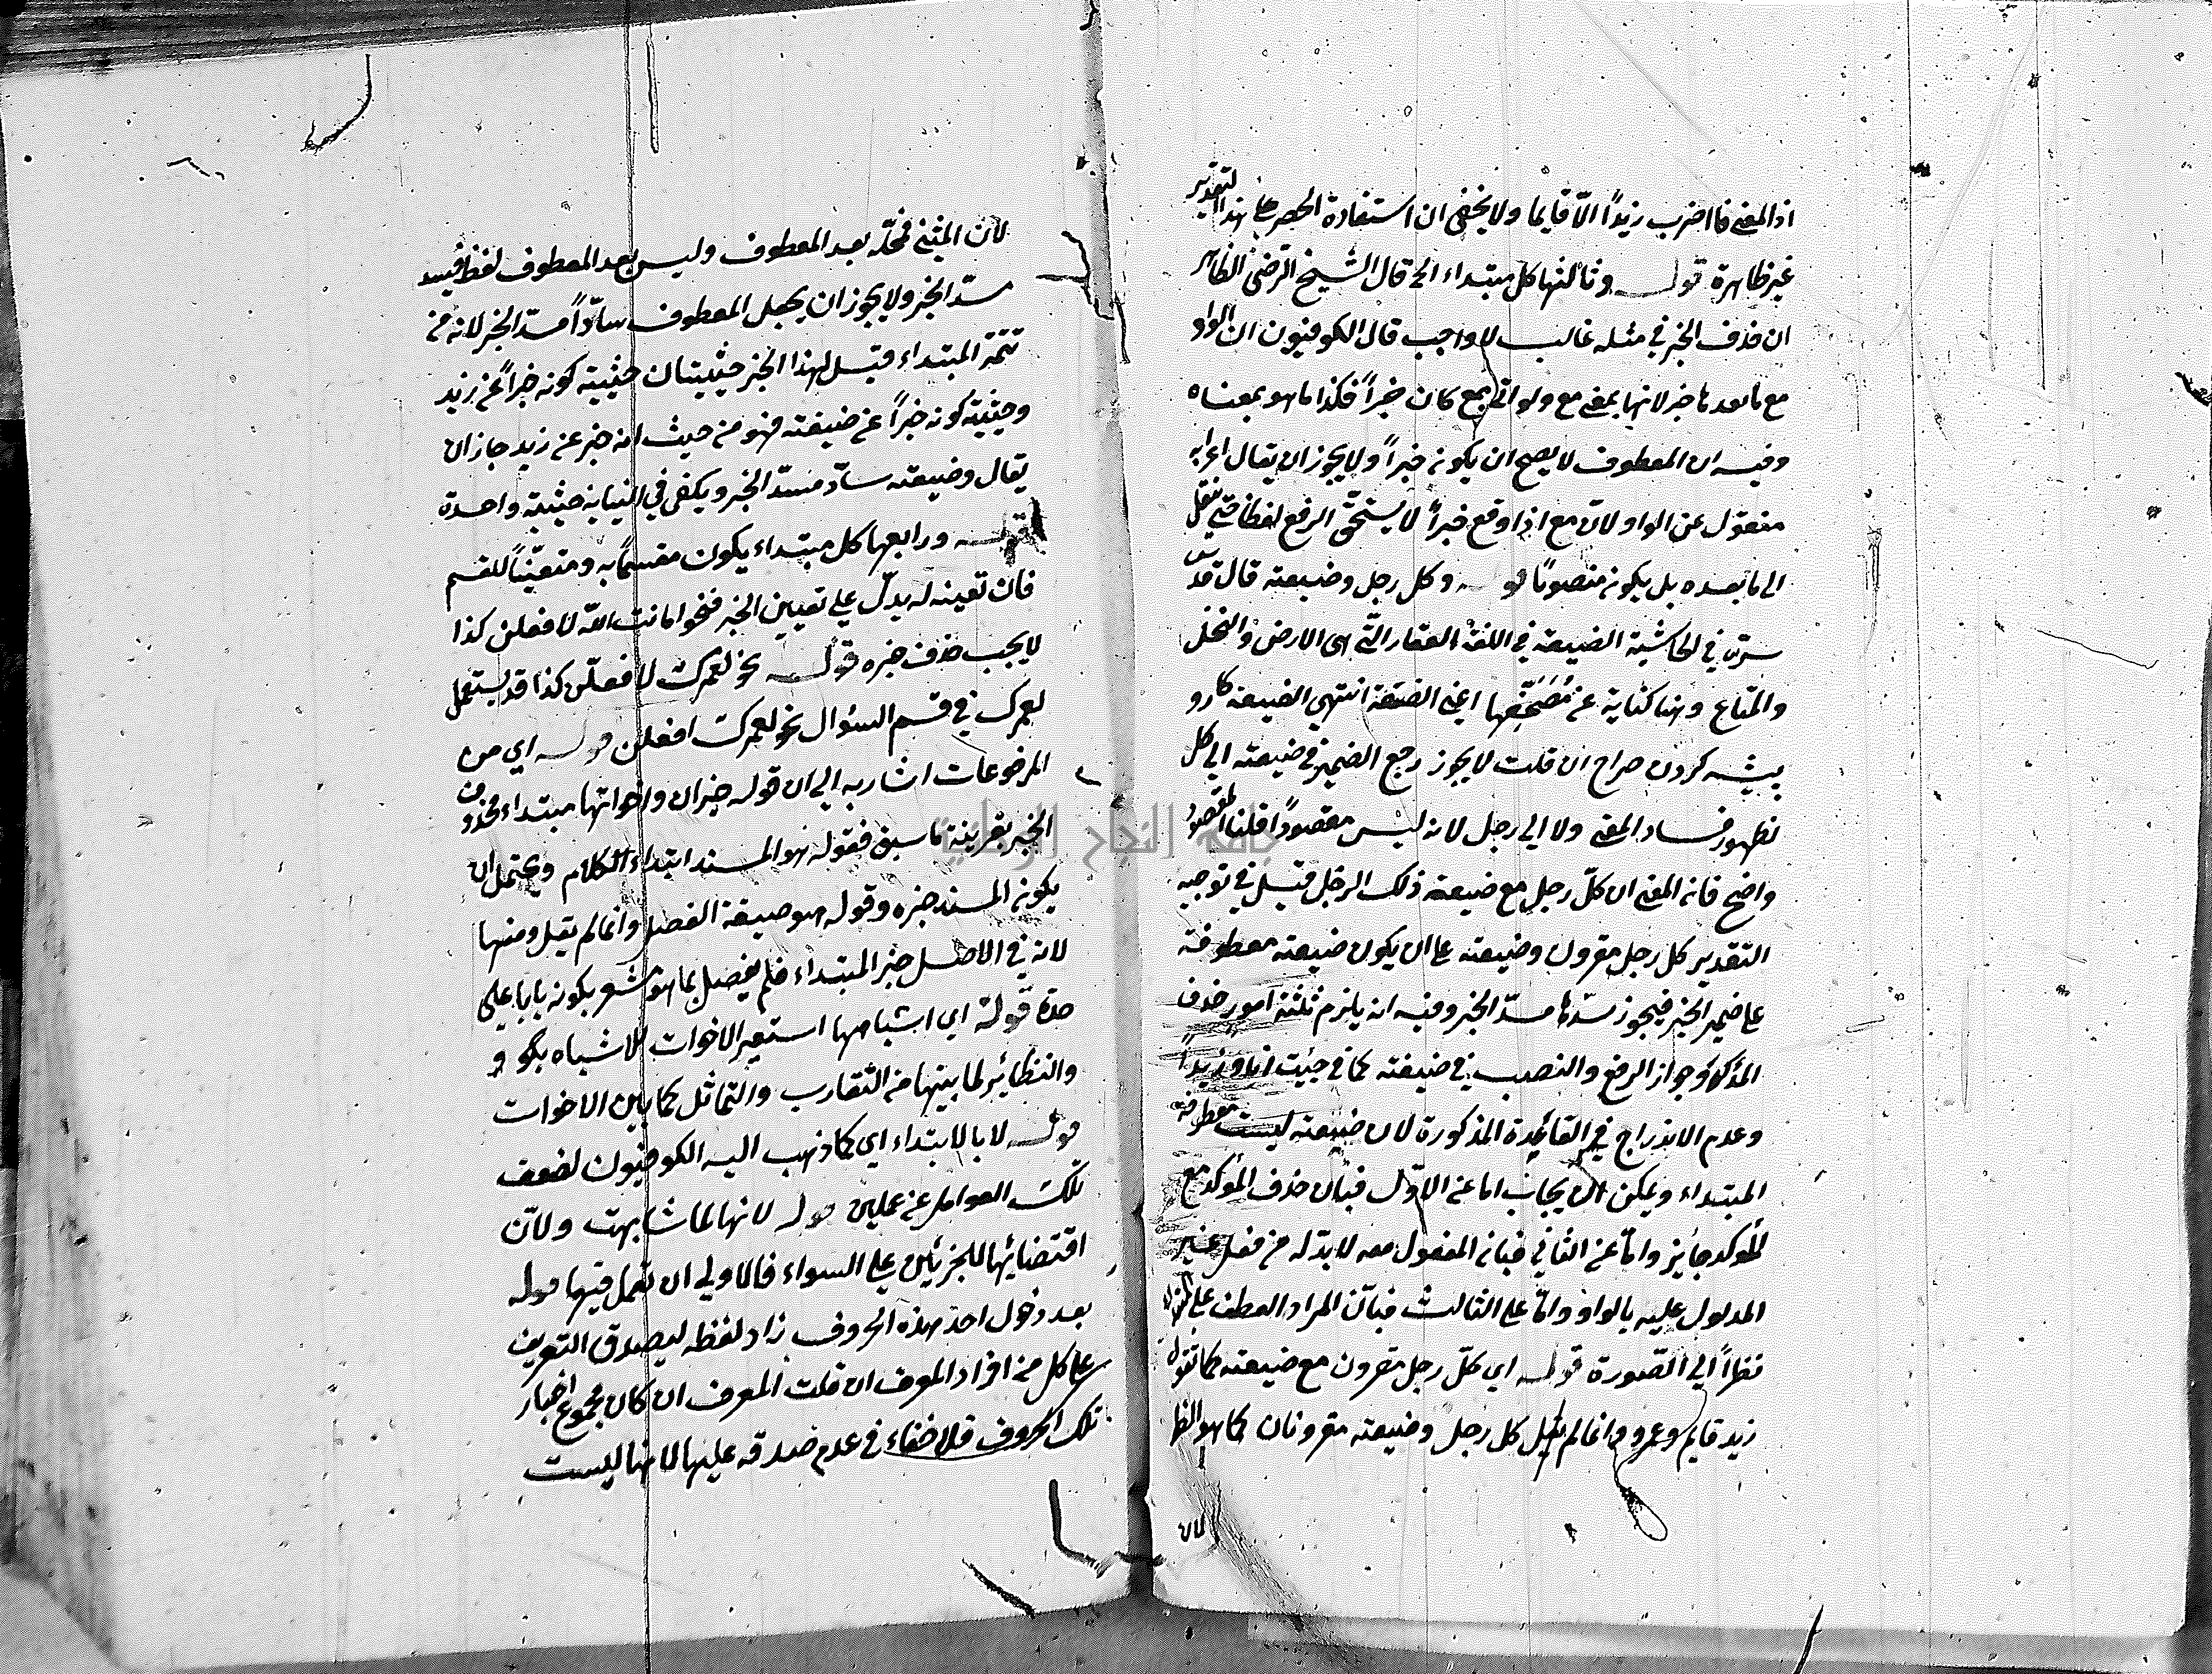 اذ المعنى ما اضرب زيدًا الّا قايما ولا يخفى ان استفادة الحصر على هذا التقدير
غير ظاهرة قوله وثالثها كل مبتداء الخ قال الشيخ الرضى الظاهر
ان حذف الخبر في مثله غالب لا واجب قال الكوفيون ان الواو
مع ما بعدها خبر لانها بمعنى مع ولو اتى بمع كان خبراً فكذا ما هو بمعناه
وفيه ان المعطوف لا يصح ان يكون خبراً ولا يجوز ان يقال اعرابه
منقول عن الواو لانّ مع اذا وقع خبراً لا يستحق الرفع لفظا حتى ينقل
الى ما بعده بل يكون منصوبًا قوله وكل رجل وضيعته قال قدّس
سرّه في الحاشية الضيعة في اللغة العقار التّى هى الارض والنخل
والمتاع وهنا كناية عن اعنى الصنعة انتهى الضيعة كارو
پيشه كردن صراح ان قلت لا يجوز رجع الضمير في ضيعته الى كل
لظهور فساد المعنى ولا الى رجل لانه ليس مقصوداً قلنا المقصود
واضح فانه المعنى ان كلّ رجل مع ضيعته ذلك الرجل قيل في توجيه
التقدير كل رجل مقرون وضيعته على ان يكون ضيعته معطوفة
على ضمير الخبر فيجوز سدّها مسدّ الخبر وفيه انه يلزم ثلثة امور حذف
المؤكد وجواز الرفع والنصب في ضيعته كما في جئيت انا وزيداً
وعدم الاندراج في القاعدة المذكورة لان ضيعته ليست معطوفة
المبتداء ويمكن ان يجاب اما عن الاوّل فبان حذف المؤكد مع
المؤكد جايز وامّا عن الثانى فبانه المفعول معه لا بدّ له من فعل غير
المدلول عليه بالواو وامّا على الثالث فبانّ المراد العطف على
نظراً الى الصّورة قوله اى كلّ رجل مقرون مع ضيعته كما تقول
زيد قايم وعمرو وانما لم كل رجل وضيعته مقرونان كما هو الظ
لان
لانّ المثنى محلّه بعد المعطوف وليس بعد المعطوف لفظ فيسد
مسدّ الخبر ولا يجوز ان يجعل المعطوف سادّاً مسدّ الخبر لانه من
تتمة المبتداء قيل لهذا الخبر حيثيتان حيثية كونه خبراً عن زيد
وحيثية كونه خبراً عن ضيعته فهو من حيث انه خبر عن زيد جاز ان
يقال وضيعته سادّ مسدّ الخبر ويكفى في النيابة حيثية واحدة
قوله ورابعها كل مبتداء يكون مقسمًا به ومتعيّنًا للقسم
فان تعينه له يدلّ على تعيين الخبر فنحو امانت اللّه لافعلن كذا
لا يجب حذف خبره قوله نحو لعمرك لافعلّن كذا قد يستعمل
لعمرك في قسم السؤال نحو لعمرك افعلن قوله اى من
المرفوعات اشار به الى ان قوله خبر ان واخواتها مبتداء محذوف
الخبر بقرينة ما سبق فقوله هو المسند ابتداء الكلام ويحتمل ان
يكون المسند خبره وقوله هو صيغة الفصل وانما لم يقل ومنها
لانه في الاصل خبر المبتداء فلم يفصل بما هو مشعر بكونه بابا على
حدة قوله اى اشباهها استعير الاخوات للاشباه
والنظائير لما بينها من التقارب والتماثل كما بين الاخوات
قوله لا بالابتداء اى كما ذهب اليه الكوفيون لضعف
تلك العوامل عن عملين قوله لانها لما شابهت ولانّ
اقتضائها للجزئين على السواء فالاولى ان تعمل فيهما قوله
بعد دخول احد هذه الحروف زاد لفظه ليصدق التعريف
على كل من افراد المعرف ان قلت المعرف ان كان مجموع اخبار
تلك الحروف فلا خفاء في عدم صدقه عليها لانها ليست
جامعة النجاح الوطنية